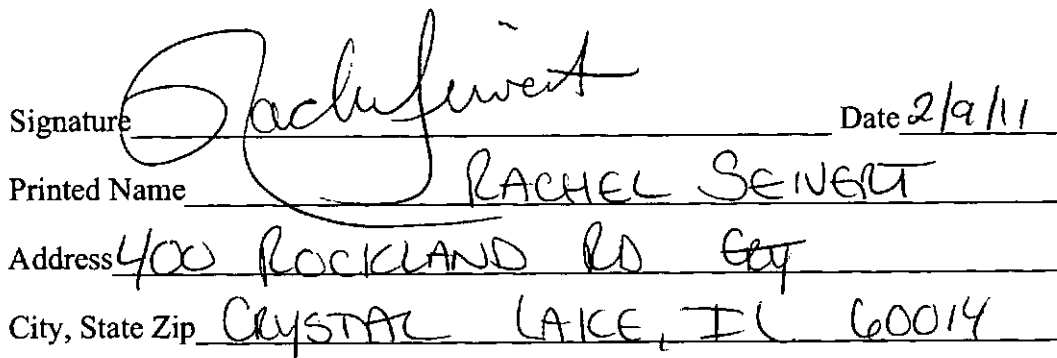 Signature Rachel Seivert Date 2/9/11
Printed Name RACHEL SEIVERT
Address 400 ROCKLAND RD
City, State Zip CRYSTAL LAKE, IL 60014